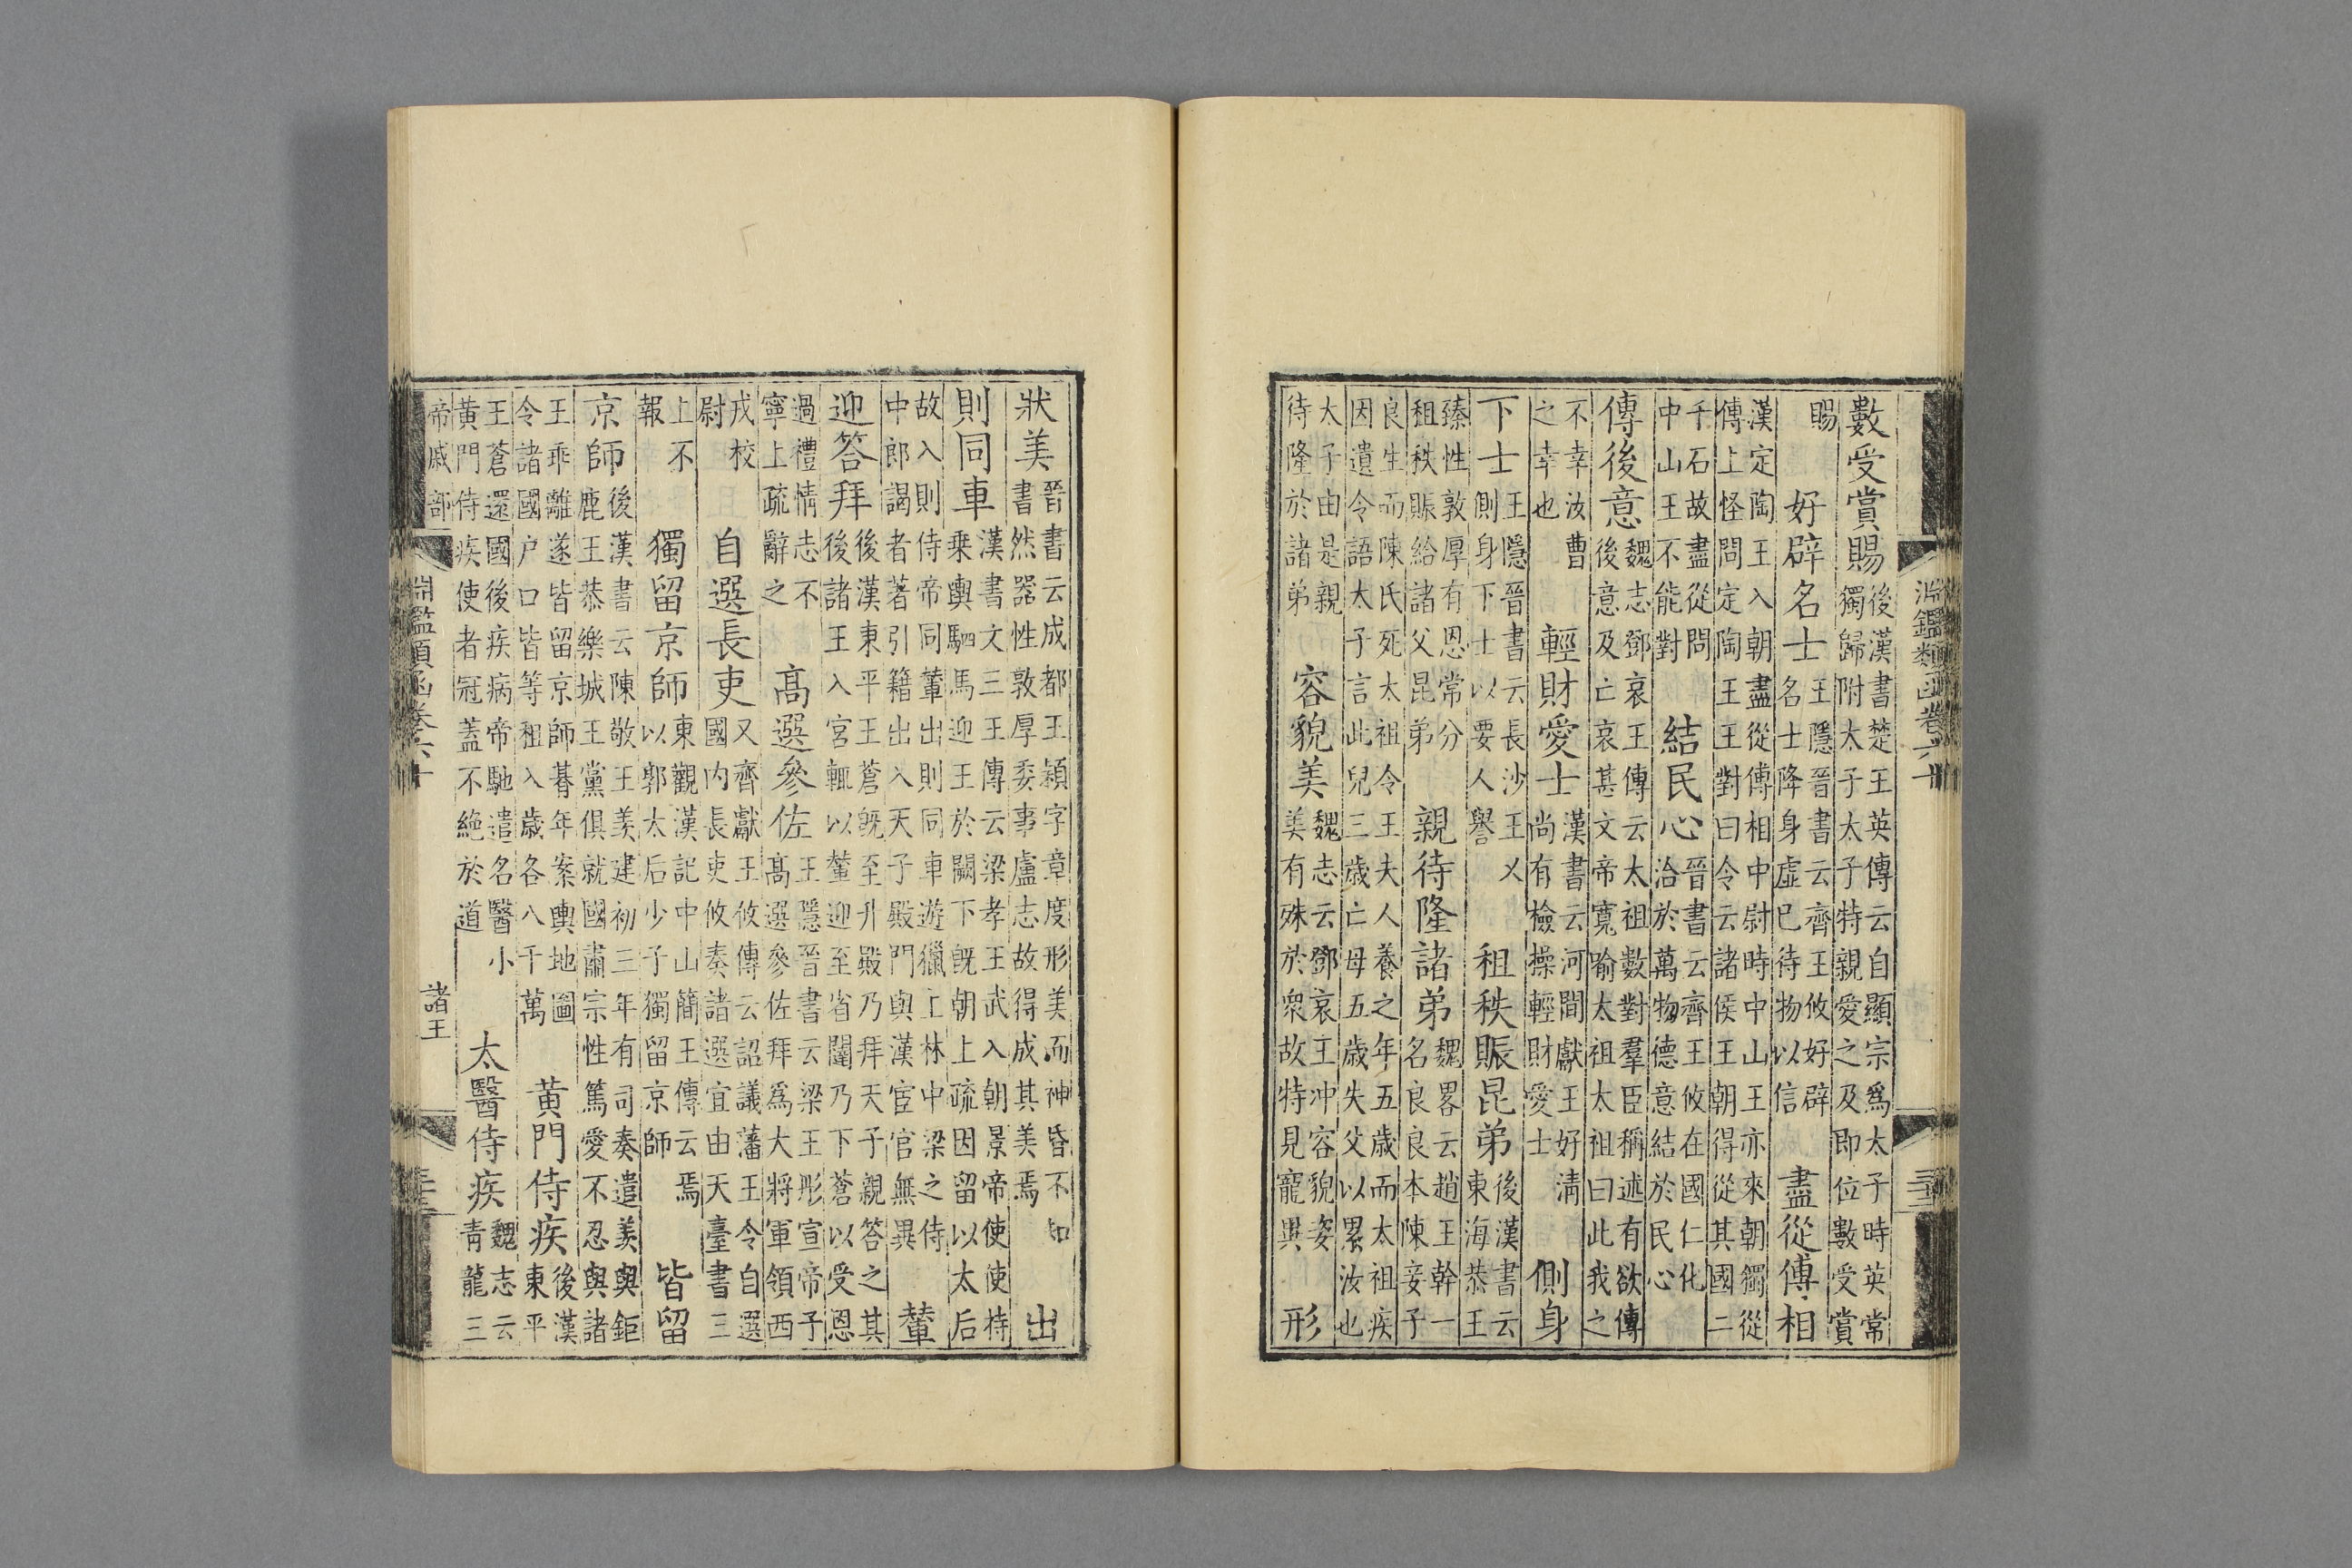 淵鑑類函卷六十
數受賞賜後漢書楚王英傳云自顯宗爲太子時英常
獨歸附太子太子特親愛之及即位數受賞
賜
好辟名士王隱晉書云齊王攸好辟
名士降身虛已待物以信
盡從傅相
漢定陶王入朝盡從傅相中尉時中山王亦來朝獨從
傅上怪問定陶王王對曰令云諸侯王朝得從其國二
千石故盡從問
中山王不能對
結民心晉書云齊王攸在國仁化
洽於萬物德意結於民心
傳後意魏志鄧哀王傳云太祖數對羣臣稱述有欲傳
後意及亡哀甚文帝寬喻太祖太祖曰此我之
不幸汝曹
之幸也
輕財愛士漢書云河間獻王好淸
尚有檢操輕財愛士
側身
下士王隱晉書云長沙王乂
側身下士以要人譽
租秩賑昆弟後漢書云
東海恭王
臻性敦厚有恩常分
租秩賑給諸父昆弟
親待隆諸弟魏畧云趙王幹一
名良良本陳妾子
良生而陳氏死太祖令王夫人養之年五歲而太祖疾
因遺令語太子言此兒三歲亡母五歲失父以累汝也
太子由是親
待隆於諸弟
容貌美魏志云鄧哀王冲容貌姿
美有殊於衆故特見寵異
形
狀美晉書云成都王穎字章度形美而神昏不知
書然器性敦厚委事盧志故得成其美焉
出
則同車漢書文三王傳云梁孝王武入朝景帝使使持
乗輿駟馬迎王於闕下既朝上疏因留以太后
故入則侍帝同輦出則同車遊獵上林中梁之侍
中郎謁者著引籍出入天子殿門與漢宦官無異
輦
迎答拜後漢東平王蒼既至升殿乃拜天子親答之其
後諸王入宮輒以輦迎至省閣乃下蒼以受恩
過禮情志不
寧上疏辭之
高選參佐王隱晉書云梁王肜宣帝子
高選參佐拜爲大將軍領西
戎校
尉
自選長吏又齊獻王攸傳云詔議藩王令自選
國內長吏攸奏諸選宜由天臺書三
上不
報
獨留京師東觀漢記中山簡王傳云焉
以郭太后少子獨留京師
皆留
京師後漢書云陳敬王羡建初三年有司奏遣羡與鉅
鹿王恭樂城王黨俱就國肅宗性篤愛不忍與諸
王乖離遂皆留京師暮年案輿地圖
令諸國户口皆等租入歲各八千萬
黄門侍疾後漢
東平
王蒼還國後疾病帝馳遣名醫小
黄門侍疾使者冠蓋不絶於道
太醫侍疾魏志云
青龍三
帝戚部
淵鑑類函卷六十
諸王